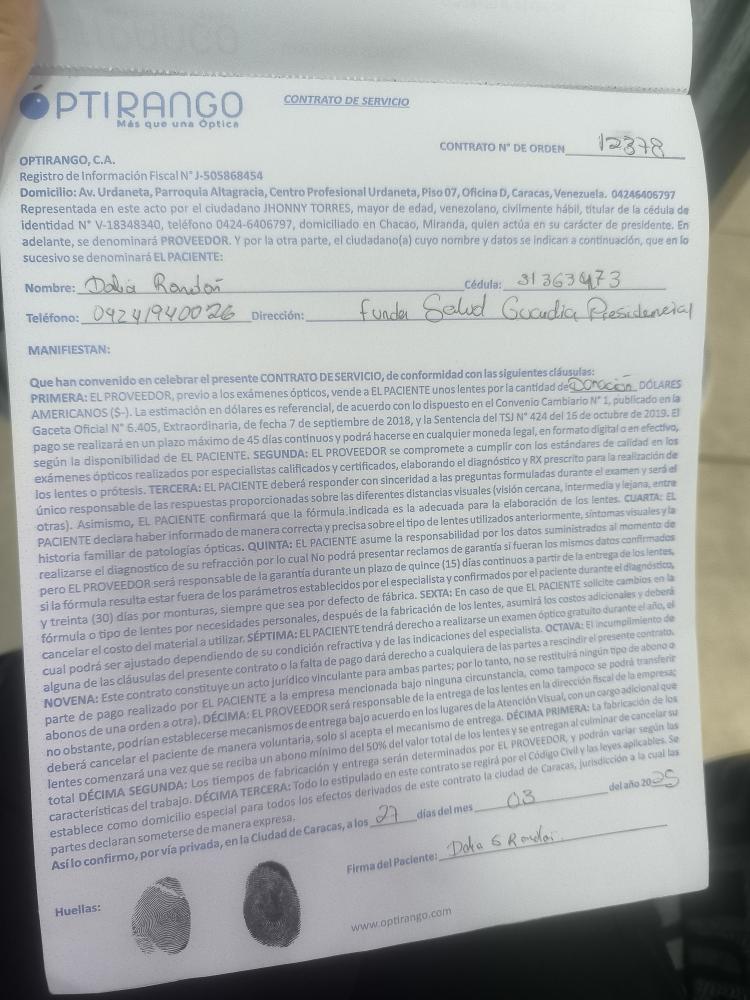 OPTIRANGO
Más que una Óptica
CONTRATO DE SERVICIO
CONTRATO N° DE ORDEN 12378
OPTIRANGO, C.A.
Registro de Información Fiscal N° J-505868454
Domicilio: Av. Urdaneta, Parroquia Altagracia, Centro Profesional Urdaneta, Piso 07, Oficina D, Caracas, Venezuela. 04246406797
Representada en este acto por el ciudadano JHONNY TORRES, mayor de edad, venezolano, civilmente hábil, titular de la cédula de
identidad N° V-18348340, teléfono 0424-6406797, domiciliado en Chacao, Miranda, quien actúa en su carácter de presidente. En
adelante, se denominará PROVEEDOR. Y por la otra parte, el ciudadano(a) cuyo nombre y datos se indican a continuación, que en lo
sucesivo se denominará EL PACIENTE:
Nombre: Dalia Rondón Cédula: 31363473
Teléfono: 04241940026 Dirección: Funda Salud Guardia Presidencial
MANIFIESTAN:
Que han convenido en celebrar el presente CONTRATO DE SERVICIO, de conformidad con las siguientes cláusulas:
PRIMERA: EL PROVEEDOR, previo a los exámenes ópticos, vende a EL PACIENTE unos lentes por la cantidad de Donación DÓLARES
AMERICANOS ($-). La estimación en dólares es referencial, de acuerdo con lo dispuesto en el Convenio Cambiario N° 1, publicado en la
Gaceta Oficial N° 6.405, Extraordinaria, de fecha 7 de septiembre de 2018, y la Sentencia del TSJ N° 424 del 16 de octubre de 2019. El
pago se realizará en un plazo máximo de 45 días continuos y podrá hacerse en cualquier moneda legal, en formato digital o en efectivo,
según la disponibilidad de EL PACIENTE. SEGUNDA: EL PROVEEDOR se compromete a cumplir con los estándares de calidad en los
exámenes ópticos realizados por especialistas calificados y certificados, elaborando el diagnóstico y RX prescrito para la realización de
los lentes o prótesis. TERCERA: EL PACIENTE deberá responder con sinceridad a las preguntas formuladas durante el examen y será el
único responsable de las respuestas proporcionadas sobre las diferentes distancias visuales (visión cercana, intermedia y lejana, entre
otras). Asimismo, EL PACIENTE confirmará que la fórmula indicada es la adecuada para la elaboración de los lentes. CUARTA: EL
PACIENTE declara haber informado de manera correcta y precisa sobre el tipo de lentes utilizados anteriormente, síntomas visuales y la
historia familiar de patologías ópticas. QUINTA: EL PACIENTE asume la responsabilidad por los datos suministrados al momento de
realizarse el diagnostico de su refracción por lo cual No podrá presentar reclamos de garantía si fueran los mismos datos confirmados
pero EL PROVEEDOR será responsable de la garantía durante un plazo de quince (15) días continuos a partir de la entrega de los lentes,
si la fórmula resulta estar fuera de los parámetros establecidos por el especialista y confirmados por el paciente durante el diagnóstico,
y treinta (30) días por monturas, siempre que sea por defecto de fábrica. SEXTA: En caso de que EL PACIENTE solicite cambios en la
fórmula o tipo de lentes por necesidades personales, después de la fabricación de los lentes, asumirá los costos adicionales y deberá
cancelar el costo del material a utilizar. SÉPTIMA: EL PACIENTE tendrá derecho a realizarse un examen óptico gratuito durante el año, el
cual podrá ser ajustado dependiendo de su condición refractiva y de las indicaciones del especialista. OCTAVA: El incumplimiento de
alguna de las cláusulas del presente contrato o la falta de pago dará derecho a cualquiera de las partes a rescindir el presente contrato.
NOVENA: Este contrato constituye un acto jurídico vinculante para ambas partes; por lo tanto, no se restituirá ningún tipo de abono o
parte de pago realizado por EL PACIENTE a la empresa mencionada bajo ninguna circunstancia, como tampoco se podrá transferir
abonos de una orden a otra). DÉCIMA: EL PROVEEDOR será responsable de la entrega de los lentes en la dirección fiscal de la empresa;
no obstante, podrían establecerse mecanismos de entrega bajo acuerdo en los lugares de la Atención Visual, con un cargo adicional que
deberá cancelar el paciente de manera voluntaria, solo si acepta el mecanismo de entrega. DÉCIMA PRIMERA: La fabricación de los
lentes comenzará una vez que se reciba un abono mínimo del 50% del valor total de los lentes y se entregan al culminar de cancelar su
total DÉCIMA SEGUNDA: Los tiempos de fabricación y entrega serán determinados por EL PROVEEDOR, y podrán variar según las
características del trabajo. DÉCIMA TERCERA: Todo lo estipulado en este contrato se regirá por el Código Civil y las leyes aplicables. Se
establece como domicilio especial para todos los efectos derivados de este contrato la ciudad de Caracas, Jurisdicción a la cual las
partes declaran someterse de manera expresa.
Así lo confirmo, por vía privada, en la Ciudad de Caracas, a los 27 días del mes 03 del año 2025
Firma del Paciente: Dalia G Rondón
Huellas:
www.optirango.com